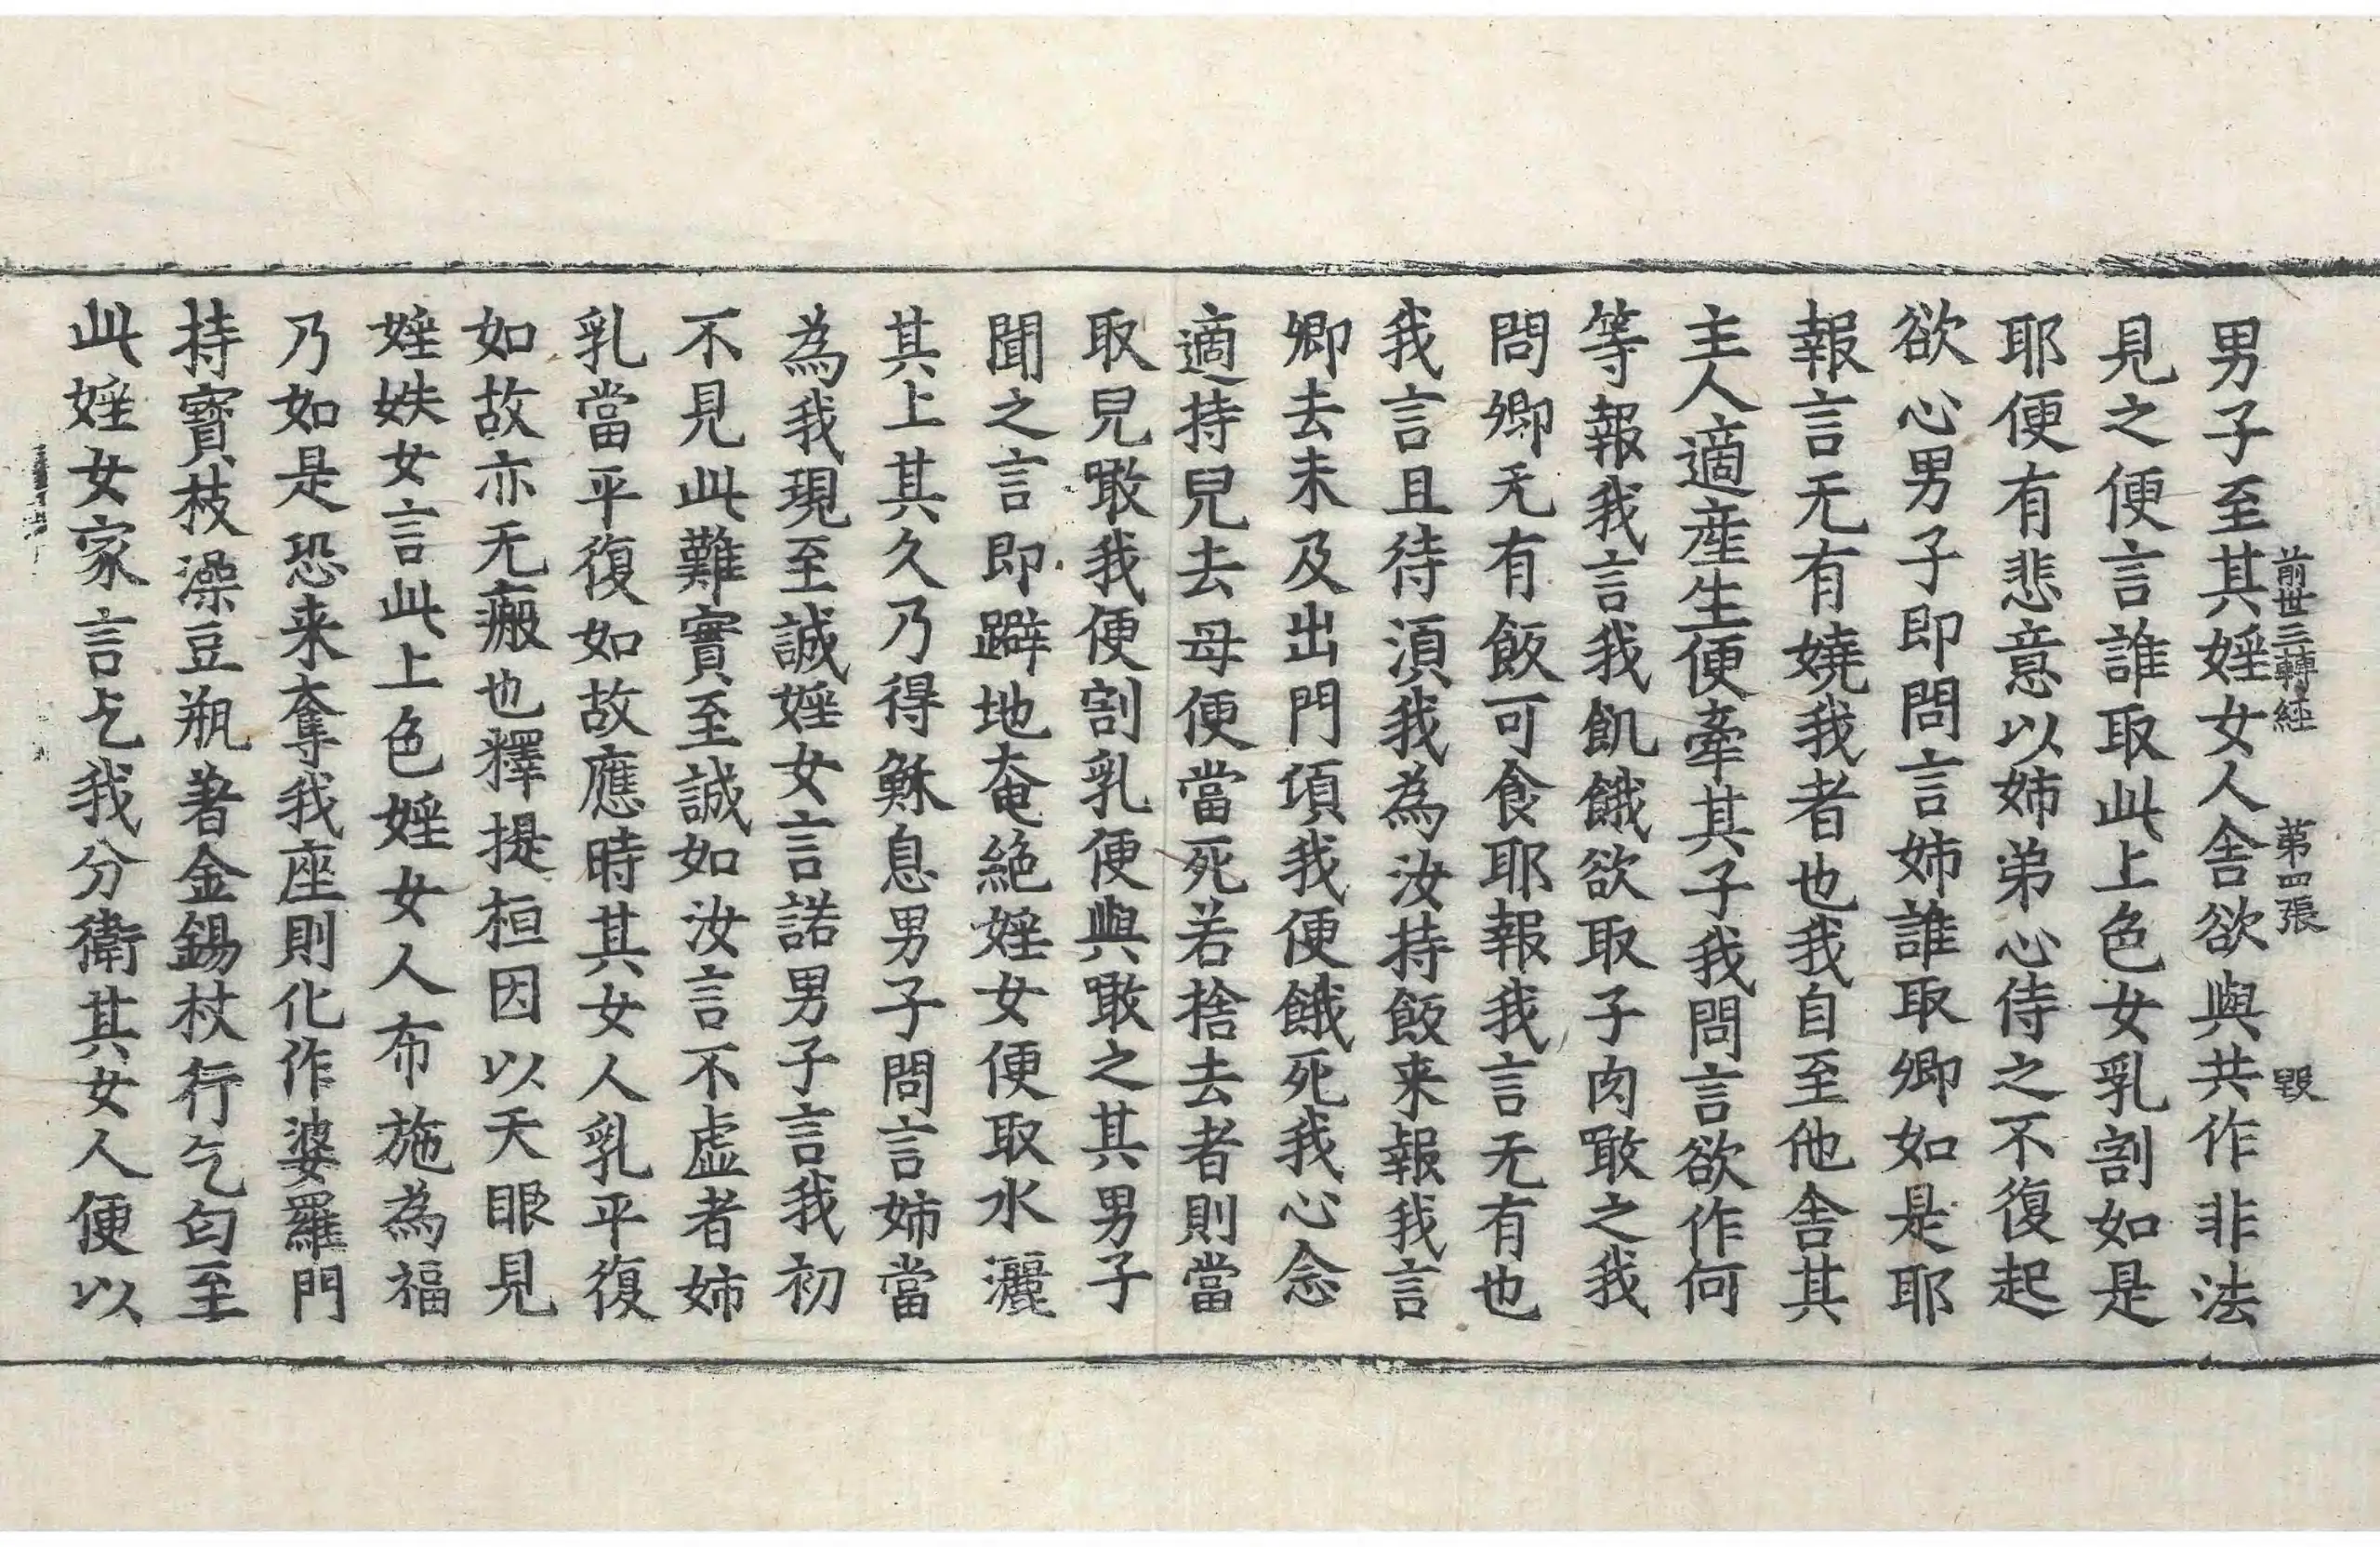 男子至其婬女人舍欲與共作非法
前世三轉経　第四張　毀
見之便言誰取此上色女乳割如是
耶便有悲意以姊弟心侍之不復起
欲心男子即問言姊誰取卿如是耶
報言无有嬈我者也我自至他舍其
主人適產生便牽其子我問言欲作何
等報我言我飢餓欲取子肉噉之我
問卿无有飯可食耶報我言无有也
我言且待湏我為汝持飯来報我言
卿去未及出門項我便餓死我心念
適持兒去母便當死若捨去者則當
取兒噉我便割乳便與噉之其男子
聞之言即躃地奄絕婬女便取水灑
其上其久乃得穌息男子問言姊當
為我現至誠婬女言諾男子言我初
不見此難實至誠如汝言不虛者姊
乳當平復如故應時其女人乳平復
如故亦无瘢也釋提桓因以天眼見
婬妷女言此上色婬女人布施為福
乃如是恐来奪我座則化作婆羅門
持寶枝澡豆瓶著金錫杖行乞匃至
此婬女家言乞我分衛其女人便以